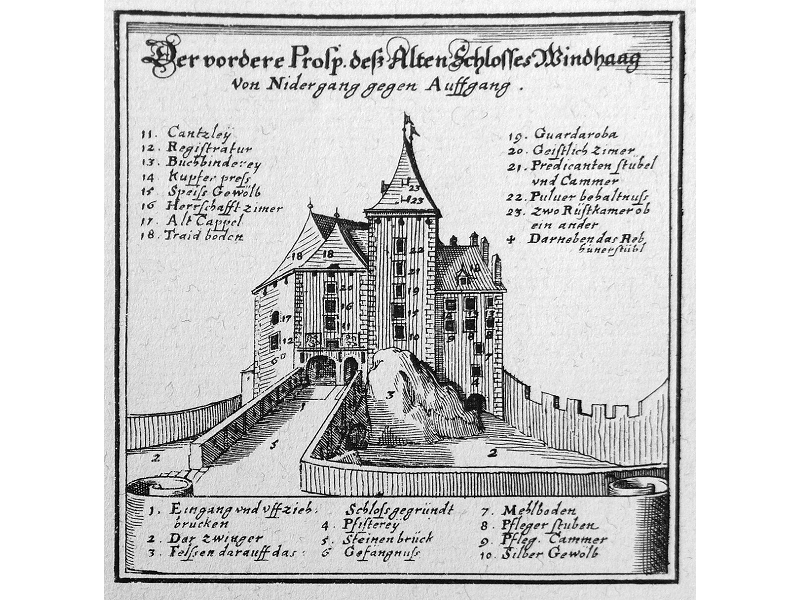 Der vordere Prosp. deß Alten Schlosses Windhaag
Von Nidergang gegen Auffgang.
11. Cantzleÿ
12. Registratur
13. Buchbinderey
14 Kupfer press
15 Speiss Gewölb
16 Herrschafft zimer
17. Alt Cappel
18. Traid boden
19. Guardaroba
20. Geistlich zimer
21. Predicanten stübel
vnd Cammer
22. Puluer behaltnuss
23. Zwo Rüstkamer ob
ein ander
+ Darneben das Reb
hünerstübl
1. Eingang vnd vffzieh
brucken
2. Der zwinger
3. Felssen darauff das
Schloss gegründt
4. Pfistereÿ
5. Steinen brück
6 Gefängnuss
7. Mehlboden
8. Pfleger stuben
9. Pfleg. Cammer
10. Silber Gewölb
23
23
18
18
22
21
19
15
10
20
16
11
17
12
6
1
3
5
2
2